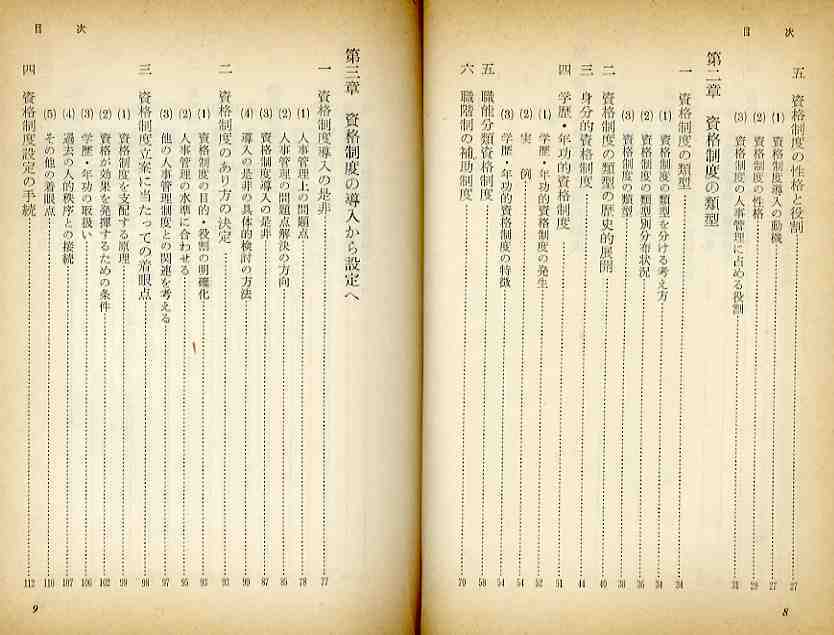 目　次
五　資格制度の性格と役割……27
(1)　資格制度導入の動機……27
(2)　資格制度の性格……29
(3)　資格制度の人事管理に占める役割……31
第二章　資格制度の類型
一　資格制度の類型……34
(1)　資格制度の類型を分ける考え方……34
(2)　資格制度の類型別分布状況……36
(3)　資格制度の類型……38
二　資格制度の類型の歴史的展開……40
三　身分的資格制度……44
四　学歴・年功的資格制度……51
(1)　学歴・年功的資格制度の発生……52
(2)　実　例……54
(3)　学歴・年功的資格制度の特徴……54
五　職能分類資格制度……58
六　職階制の補助制度……70
8
目　次
第三章　資格制度の導入から設定へ
一　資格制度導入の是非……77
(1)　人事管理上の問題点……78
(2)　人事管理の問題点解決の方向……85
(3)　資格制度導入の是非……87
(4)　導入の是非の具体的検討の方法……90
二　資格制度のあり方の決定……93
(1)　資格制度の目的・役割の明確化……93
(2)　人事管理の水準に合わせる……95
(3)　他の人事管理制度との関連を考える……97
三　資格制度立案に当たっての着眼点……98
(1)　資格制度を支配する原理……99
(2)　資格が効果を発揮するための条件……102
(3)　学歴・年功の取扱い……106
(4)　過去の人的秩序との接続……107
(5)　その他の着眼点……110
四　資格制度設定の手続……112
9